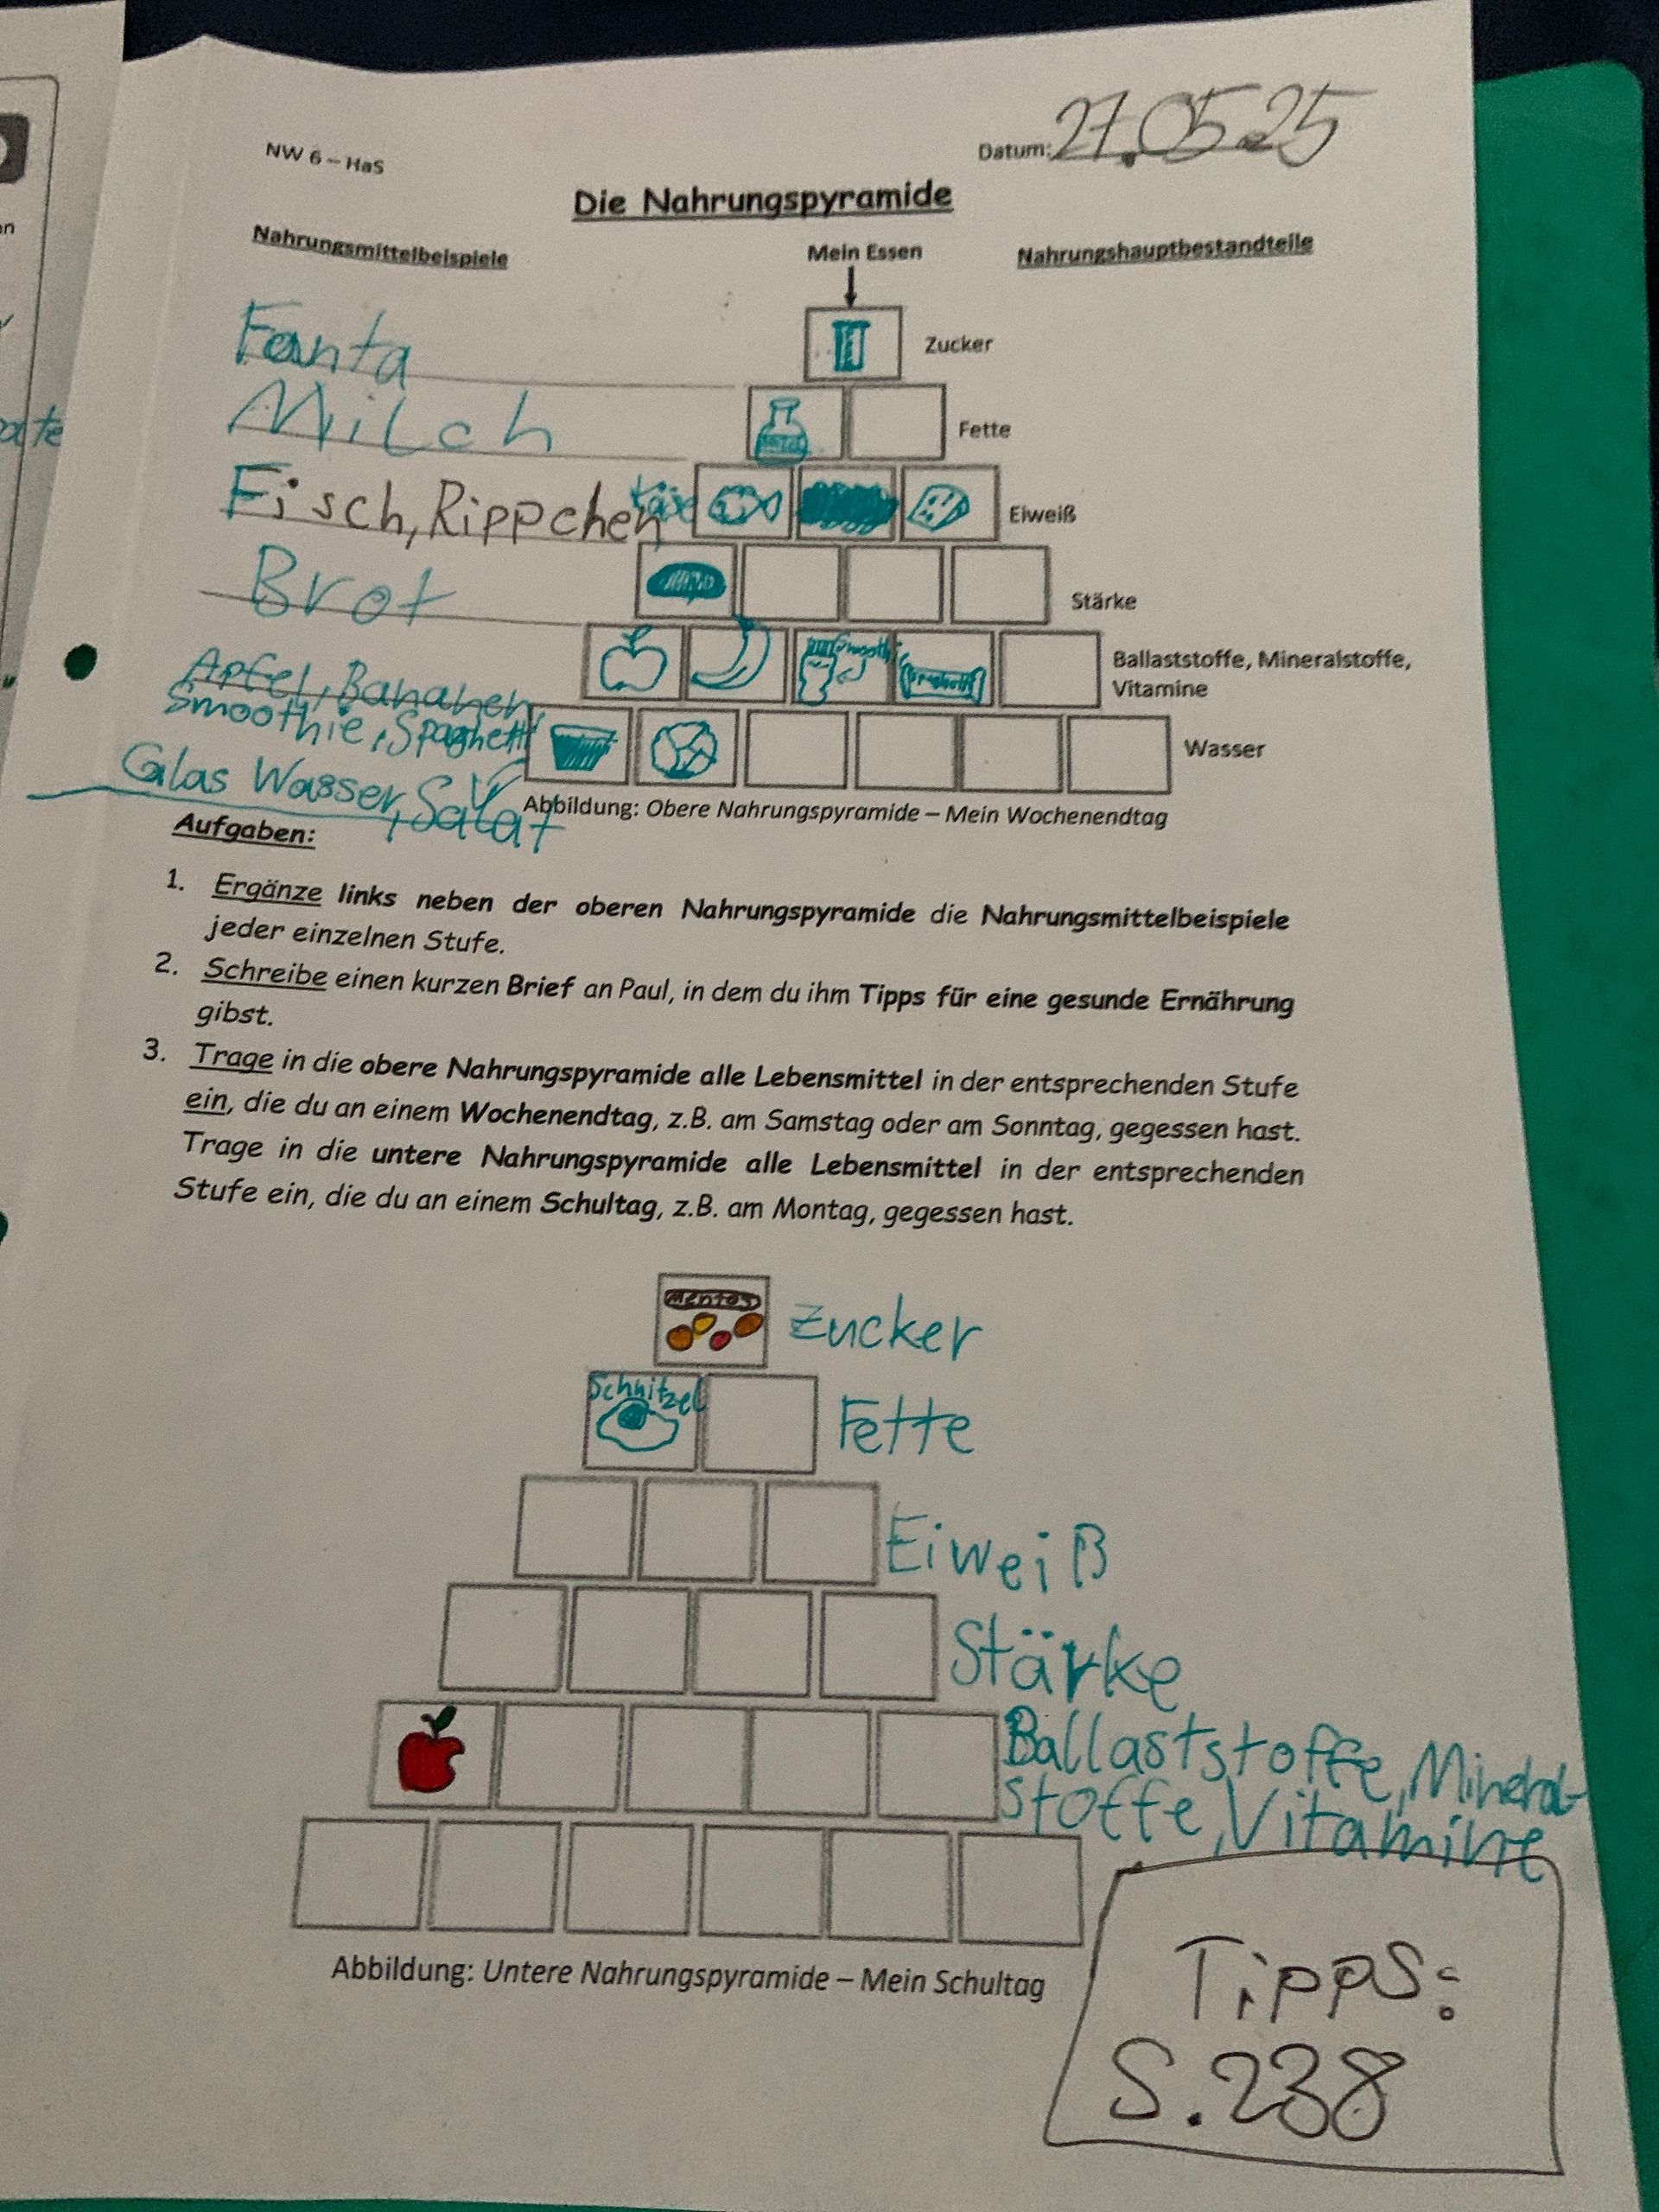 NW 6 – HaS
Datum: 27.05.25
Die Nahrungspyramide
Nahrungsmittelbeispiele
Mein Essen
Nahrungshauptbestandteile
Fanta
Zucker
Milch
Fette
Fisch, Rippchen Käse
Eiweiß
Brot
Stärke
Apfel, Bananen
Smoothie, Spaghetti
Smooth
Spaghetti
Ballaststoffe, Mineralstoffe,
Vitamine
Glas Wasser, Salat
Wasser
Abbildung: Obere Nahrungspyramide – Mein Wochenendtag
Aufgaben:
1. Ergänze links neben der oberen Nahrungspyramide die Nahrungsmittelbeispiele
jeder einzelnen Stufe.
2. Schreibe einen kurzen Brief an Paul, in dem du ihm Tipps für eine gesunde Ernährung
gibst.
3. Trage in die obere Nahrungspyramide alle Lebensmittel in der entsprechenden Stufe
ein, die du an einem Wochenendtag, z.B. am Samstag oder am Sonntag, gegessen hast.
Trage in die untere Nahrungspyramide alle Lebensmittel in der entsprechenden
Stufe ein, die du an einem Schultag, z.B. am Montag, gegessen hast.
mentos
Zucker
Schnitzel
Fette
Eiweiß
Stärke
Ballaststoffe, Mineral-
stoffe, Vitamine
Abbildung: Untere Nahrungspyramide – Mein Schultag
Tipps:
S. 238